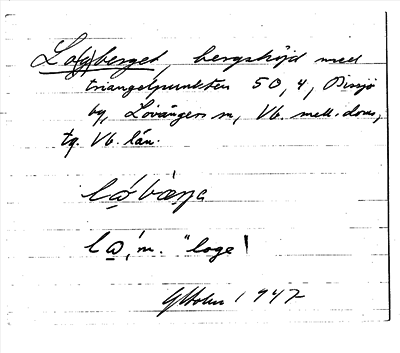 Lo(g)berget, bergshöjd med
triangelpunkten 50,4, Bissjö
by, Lövångers sn, Vb. mell. doms,
tg. Vb. län.
lo̲ bærje
lo̲, m. "loge"
GHolm 1947